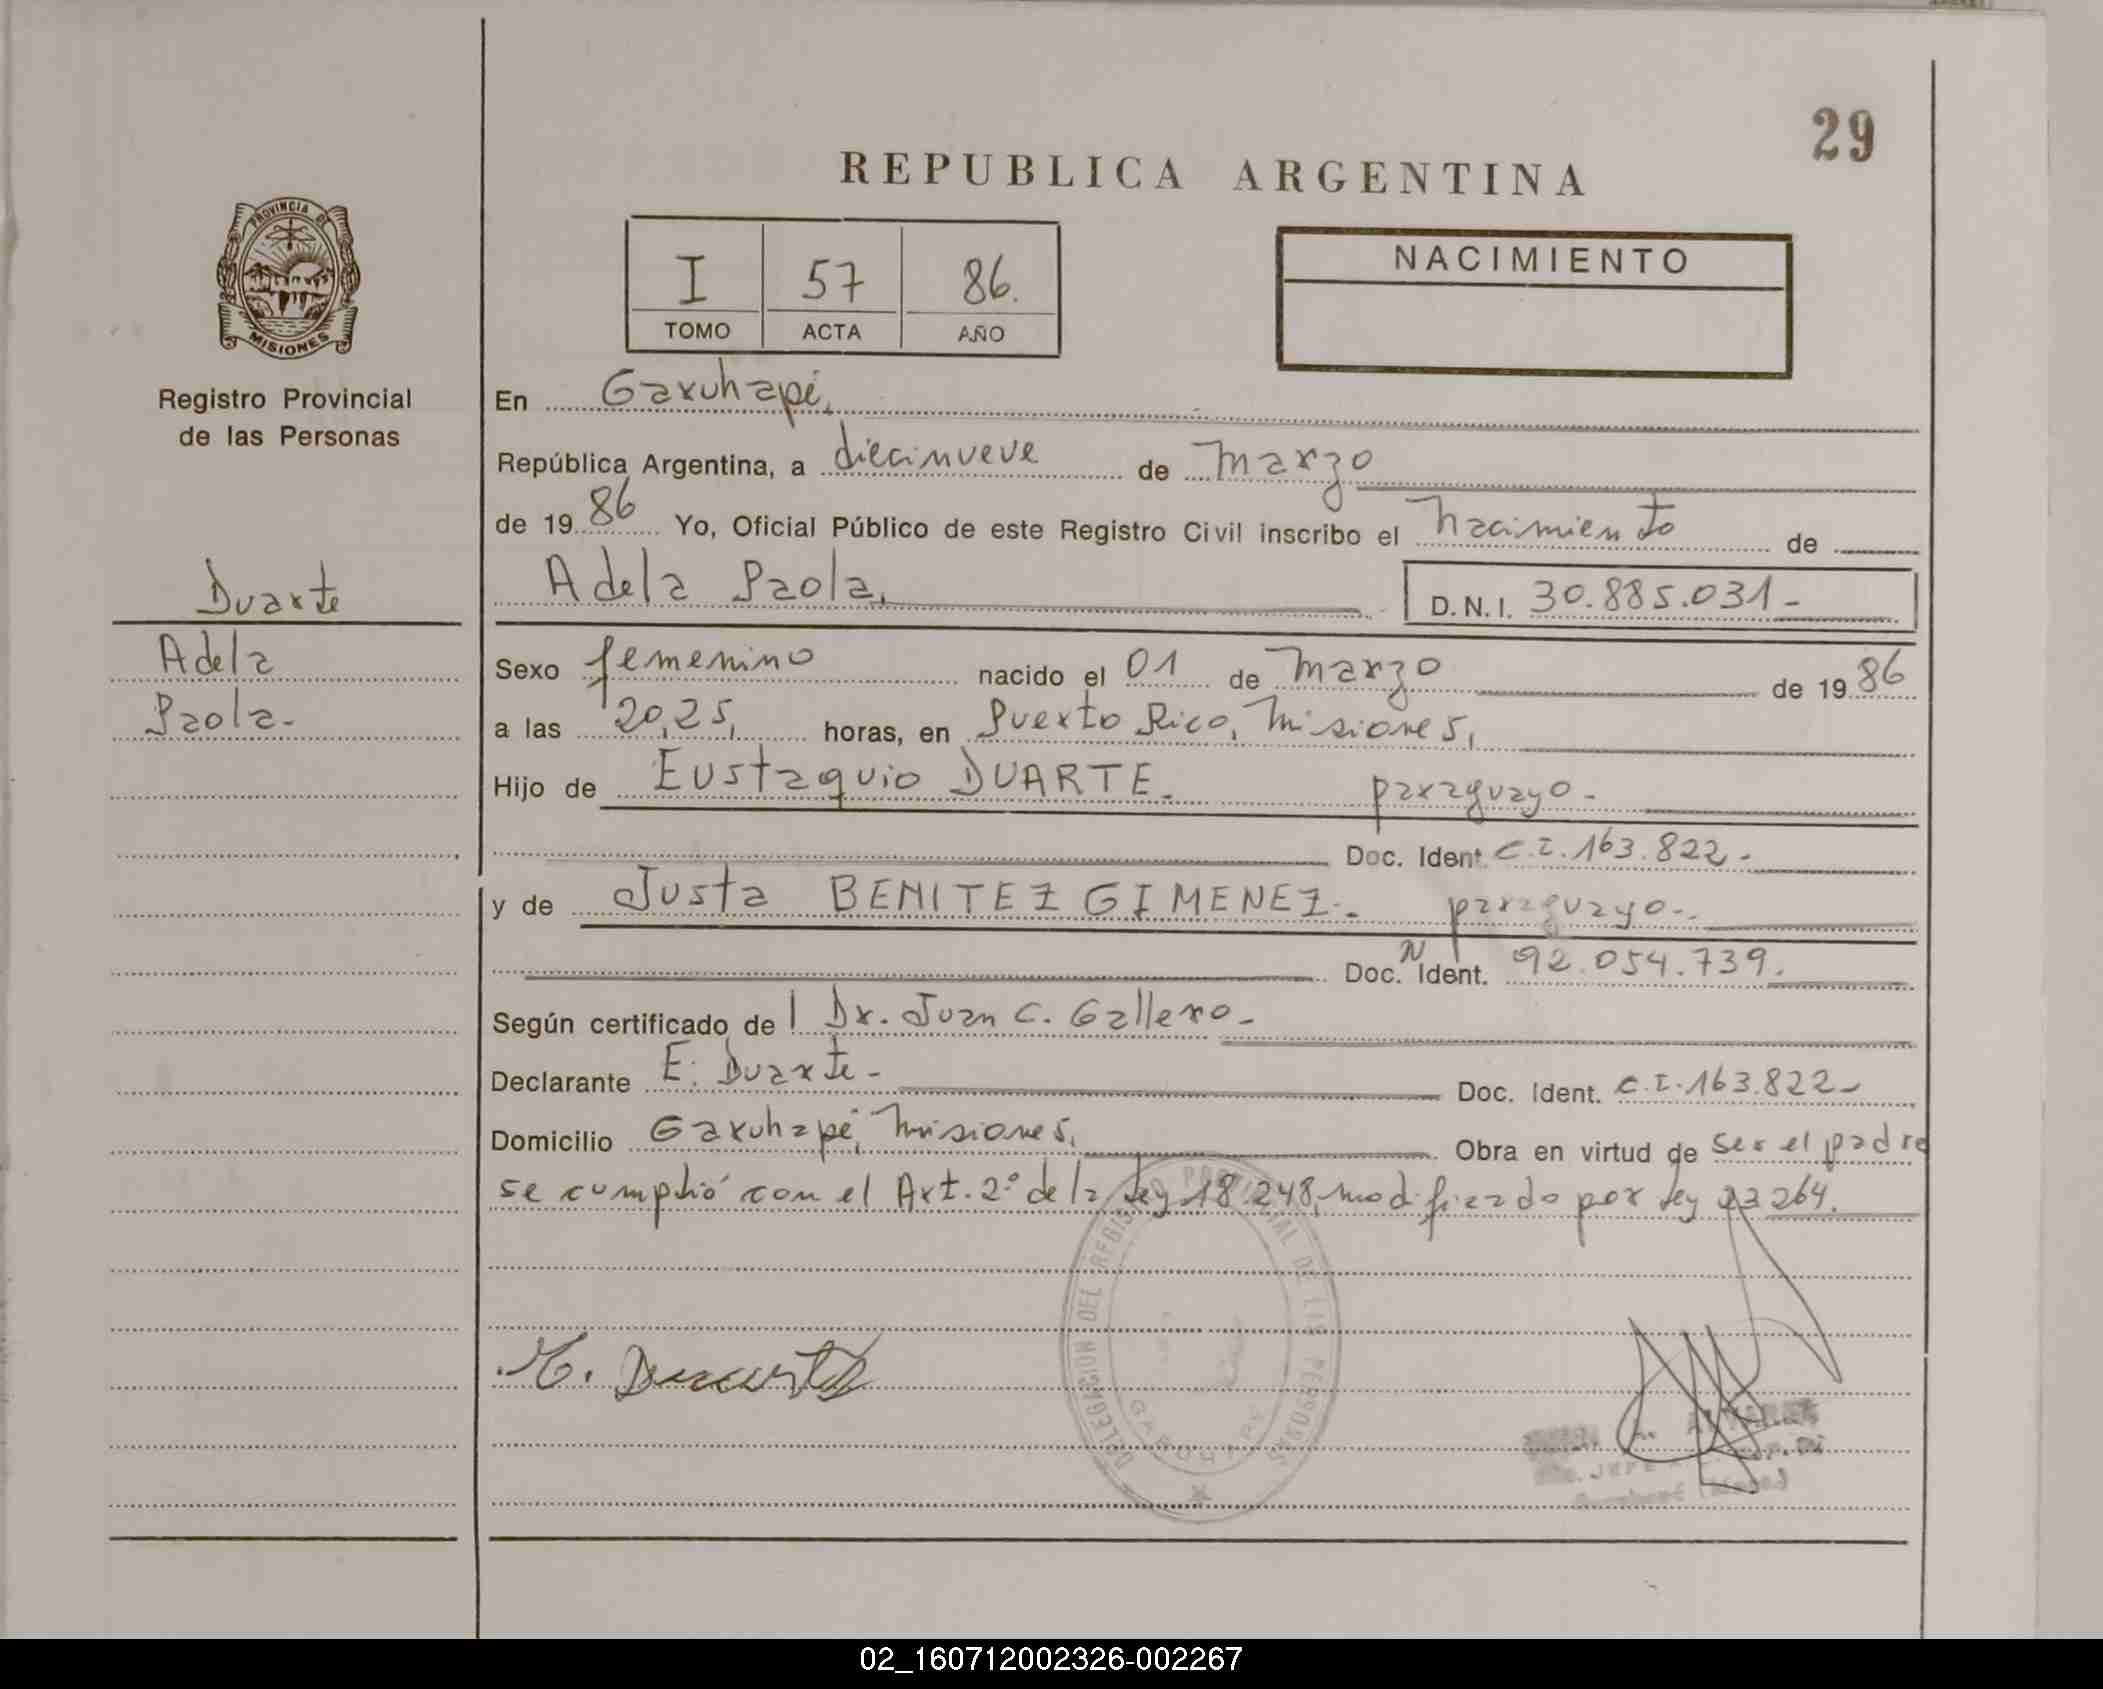 29
REPUBLICA ARGENTINA
PROVINCIA DE
MISIONES
Registro Provincial
de las Personas
I 57 86.
TOMO ACTA AÑO
NACIMIENTO
En Garuhapé,
República Argentina, a diecinueve de marzo
de 1986 Yo, Oficial Público de este Registro Civil inscribo el nacimiento de
Adela Paola, D.N.I. 30.885.031-
Duarte
Adela
Paola.
Sexo femenino nacido el 01 de marzo de 1986
a las 20,25, horas, en Puerto Rico, Misiones,
Hijo de Eustaquio DUARTE. paraguayo-
Doc. Ident. C.I. 163.822-
y de Justa BENITEZ GIMENEZ.- paraguayo-
Doc. N Ident. 92.054.739.
Según certificado de Dr. Juan C. Gallero-
Declarante E. Duarte- Doc. Ident. C.I. 163.822-
Domicilio Garuhapé, Misiones, Obra en virtud de ser el padre
se cumplió con el Art. 2º de la Ley 18.248, modificado por Ley 23264.
DELEGACION DEL REGISTRO PROVINCIAL DE LAS PERSONAS
GARUHAPE
E. Duarte
02_160712002326-002267